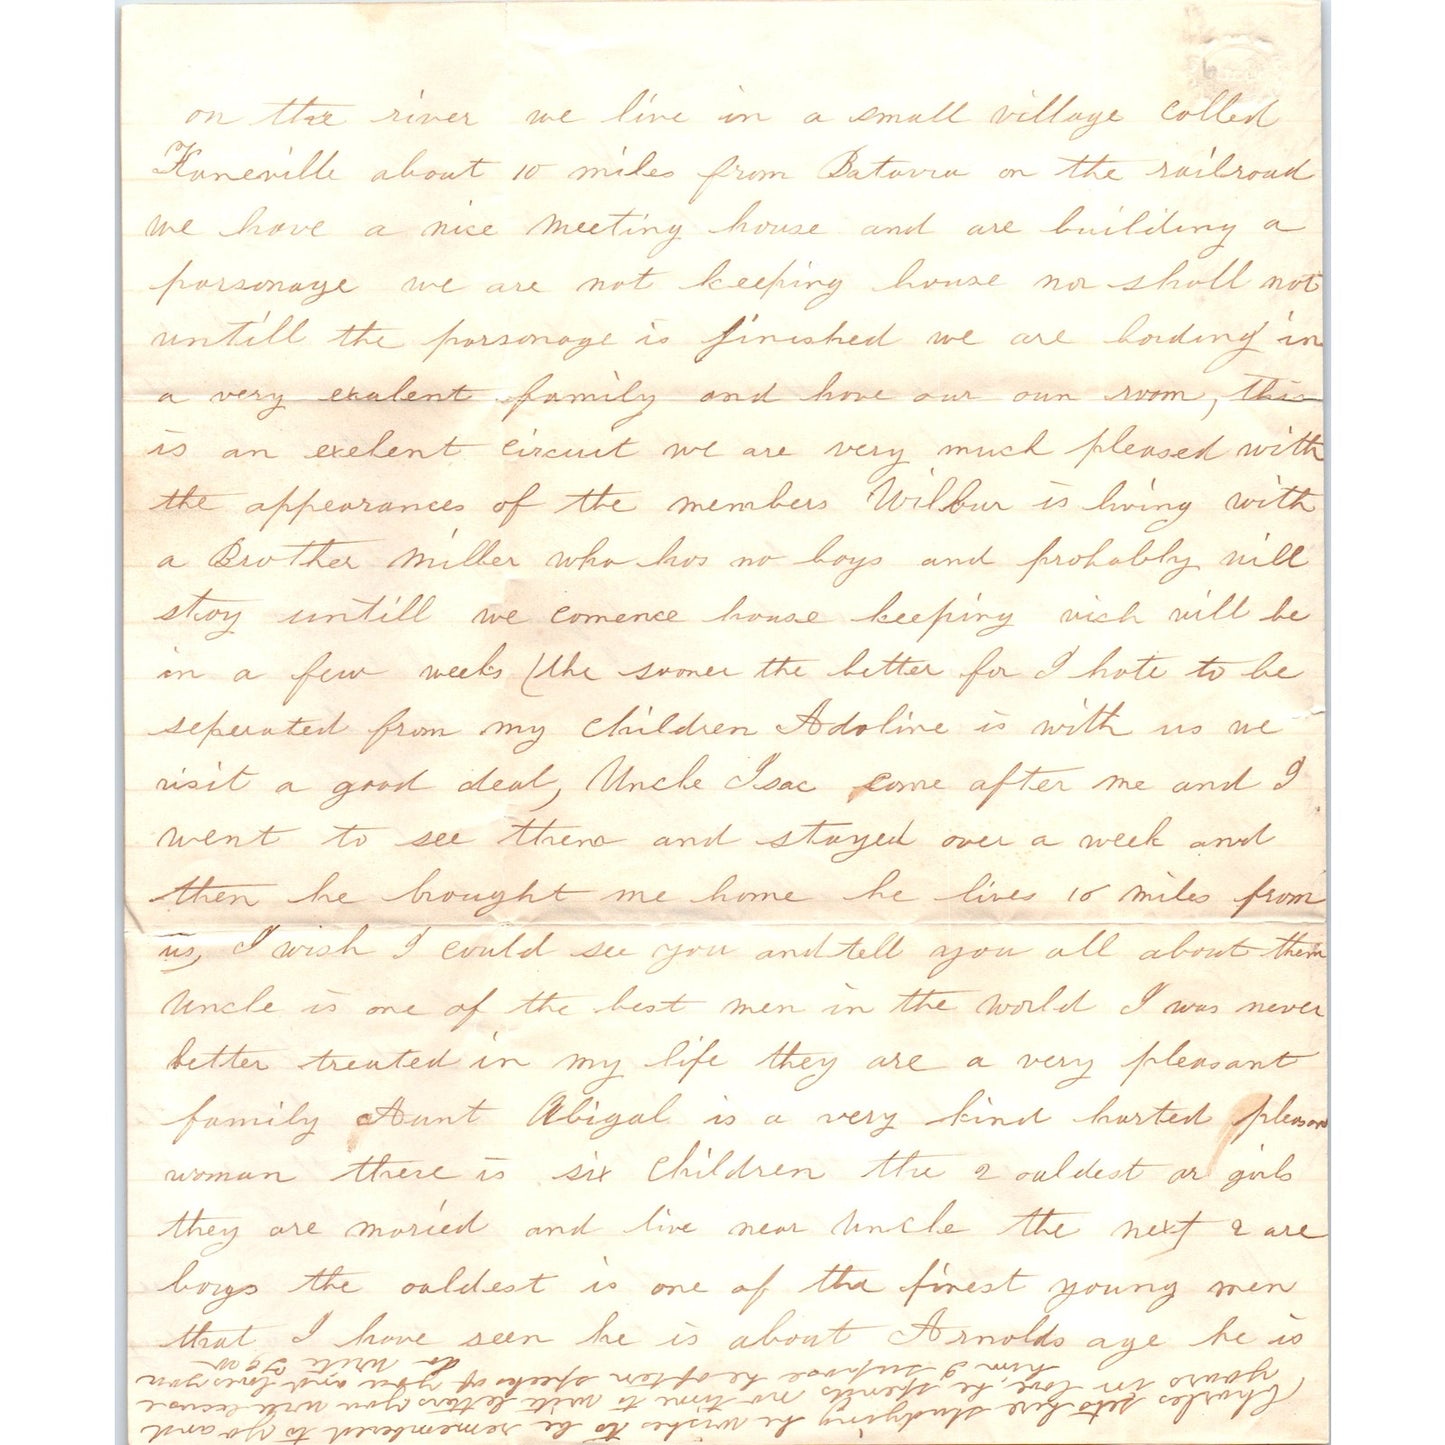 on the river we live in a small village called
Kaneville about 10 miles from Batavia on the railroad
we have a nice meeting house and are building a
parsonage we are not keeping house nor shall not
untill the parsonage is finished we are bording in
a very exalent family and have our oun room, this
is an exelent circuit we are very much pleased with
the appearances of the members Wilbur is living with
a Brother Miller who has no boys and probably will
stay untill we comence house keeping vich will be
in a few weeks (the sooner the better for I hate to be
seperated from my children Adoline is with us we
visit a good deal, Uncle Isac come after me and I
went to see them and stayed over a week and
then he brought me home he lives 10 miles from
us, I wish I could see you and tell you all about them
Uncle is one of the best men in the world I was never
better treated in my life they are a very pleasant
family Aunt Abigal is a very kind harted pleasan
woman there is six children the 2 ouldest ar girls
they are maried and live near Uncle the next 2 are
boys the ouldest is one of the finest young men
that I have seen he is about Arnolds age he is
Charles sets here studying he wishes to be remembered to you and
yours in love, he spends no time to write letters you will excuse
him I supose he often speeks of you and loves you
do write